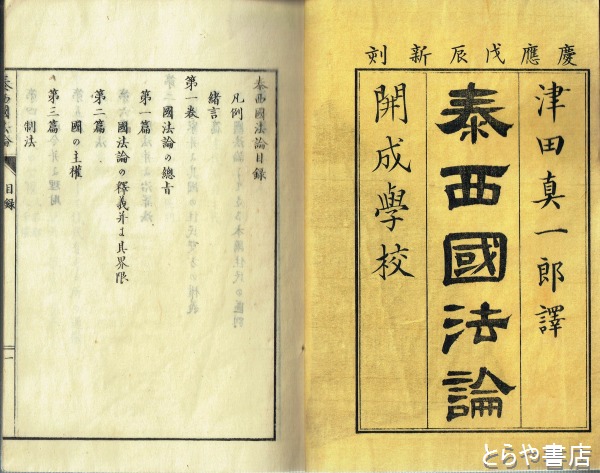 慶應戊辰新刻
津田真一郎譯
泰西國法論
開成學校
泰西國法論目録
凡例
緒言
第一巻
國法論の總旨
第一篇
國法論の釋義并ま其界限
第二篇
國の主權
第三篇
制法
泰西國法論
目録
一
とらや書店